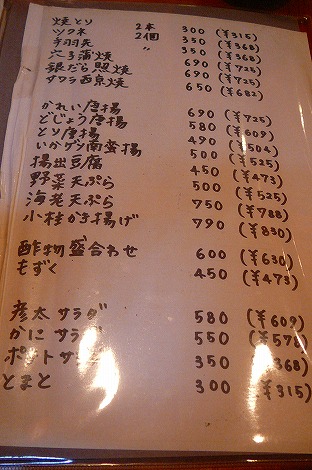 焼とり 2本 300 (¥315)
ツクネ 2個 350 (¥368)
手羽先 〃 350 (¥368)
穴子蒲焼 690 (¥725)
銀だら照焼 690 (¥725)
サワラ西京焼 650 (¥682)
かれい唐揚 690 (¥725)
どじょう唐揚 580 (¥609)
とり唐揚 (¥504)
いかゲソ南蛮揚 500 (¥525)
揚出豆腐 450 (¥473)
野菜天ぷら 500 (¥525)
海老天ぷら 750 (¥788)
小柱かき揚げ 790 (¥830)
酢物盛合わせ 600 (¥630)
もずく 450 (¥473)
彦太サラダ 580 (¥609)
かにサラダ 550 (¥578)
ポテトサラダ 350 (¥368)
とまと 300 (¥315)